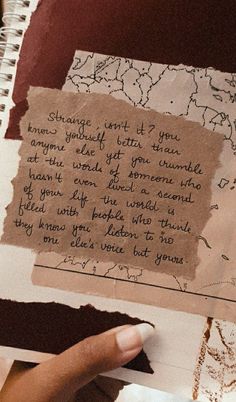 Strange, isn't it? you
know yourself better than
anyone else yet you crumble
at the words of someone who
hasn't even lived a second
of your life. the world is
filled with people who think
they know you. listen to no
one else's voice but yours.